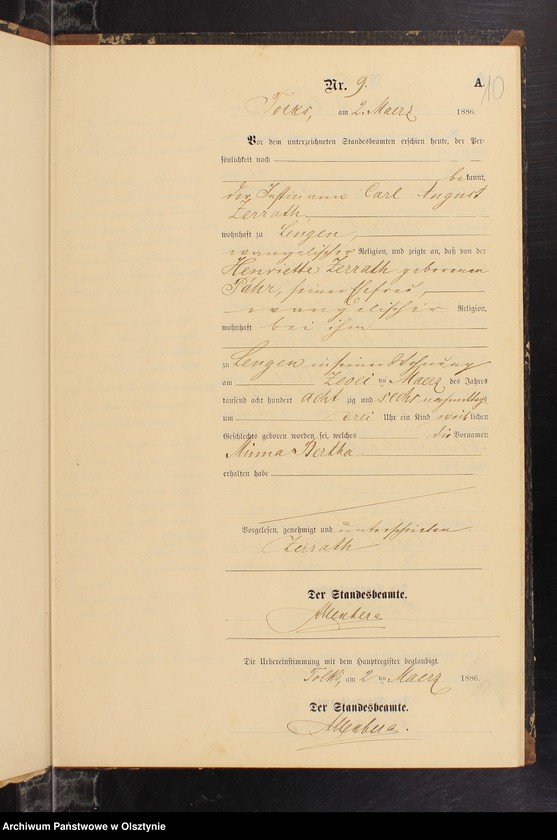 Nr. 9.
A.
10
Tolks, am 2. Maerz 1886.
Vor dem unterzeichneten Standesbeamten erschien heute, der Per-
sönlichkeit nach
bekannt,
der Instmann Carl August
Zerrath,
wohnhaft zu Lengen,
evangelischer Religion, und zeigte an, daß von der
Henriette Zerrath geborenen
Pähr, seiner Ehefrau
evangelischer Religion,
wohnhaft bei ihm
zu Lengen in seiner Wohnung
am Maerz des Jahres
tausend acht hundert acht zig und sechs nachmittags
um drei Uhr ein Kind weiblichen
Geschlechts geboren worden sei, welches die Vornamen
Minna Bertha
erhalten habe
Vorgelesen, genehmigt und unterschrieben
Zerrath
Der Standesbeamte.
Die Uebereinstimmung mit dem Hauptregister beglaubigt.
Tolks, am 2 ten Maerz 1886.
Der Standesbeamte.
Archiwum Państwowe w Olsztynie